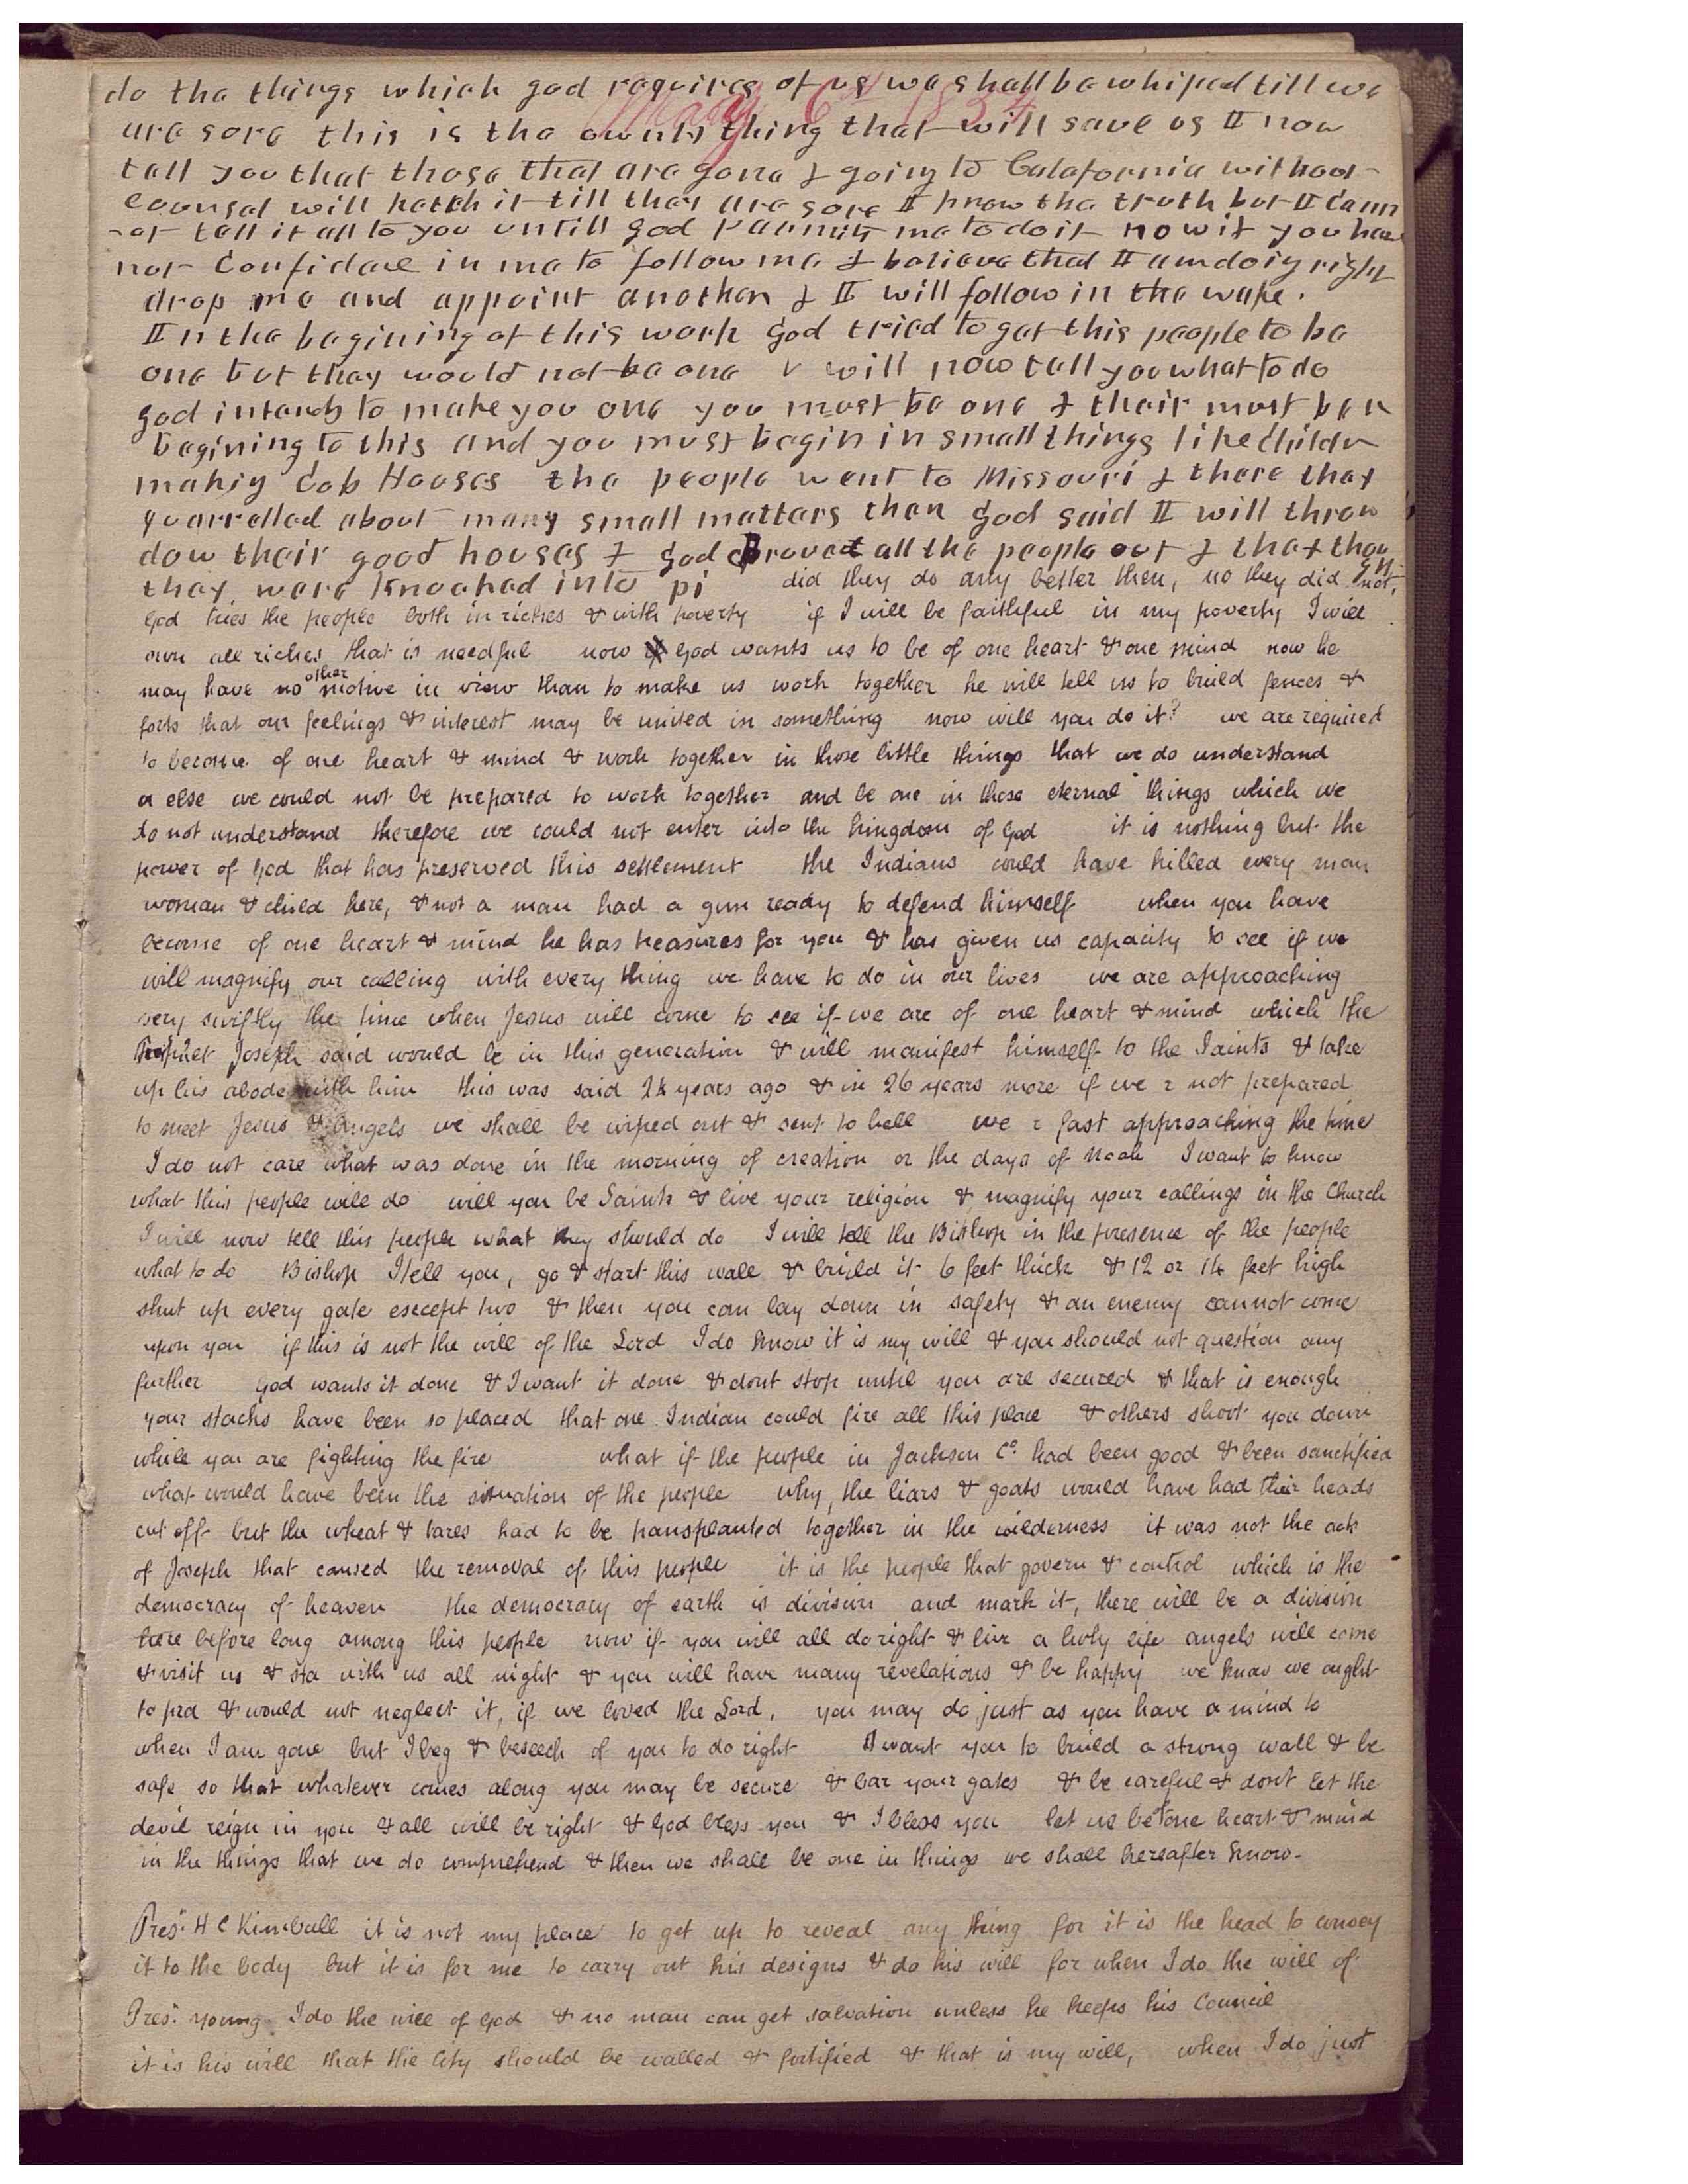 May 6th 1854
do the things which god requires of us we shall be whiped till we
are sore this is the ownly thing that will save us II now
tell you that those that are gone & going to Calafornia without
counsel will ketch it till they are sore II know the truth but II cann
-ot tell it all to you untill god permits me to do it now if you have
not Confidace in me to follow me & believe that II am doig right
drop me and appoint another & II will follow in the wake.
IIn the begining of this work God tried to get this people to be
one but they would not be one v will now tell you what to do
god intends to make you one you must be one & their must be a
begining to this and you must begin in small things like childr
makig Cob Houses the people went to Missouri & there they
quarrelled about many small matters then God said II will throw
dow their good houses & God Droved all the people out &
they were knocked into pi did they do any better then, no they did not,
God tries the people both in riches & with poverty if I will be faithful in my poverty I will
own all riches that is needful now God wants us to be of one heart & one mind now he
may have no other motive in view than to make us work together he will tell us to build fences &
forts that our feelings & interest may be united in something now will you do it? we are required
to become of one heart & mind & work together in those little things that we do understand
or else we could not be prepared to work together and be one in those eternal things which we
do not understand therefore we could not enter into the kingdom of God it is nothing but the
power of God that has preserved this settlement the Indians could have killed every man
woman & child here, & not a man had a gun ready to defend himself when you have
become of one heart & mind he has treasures for you & has given us capacity to see if we
will magnify our calling with every thing we have to do in our lives we are approaching
very swiftly the time when Jesus will come to see if we are of one heart & mind which the
Prophet Joseph said would be in this generation & will manifest himself to the Saints & take
up his abode with him this was said 24 years ago & in 26 years more if we r not prepared
to meet Jesus & Angels we shall be wiped out & sent to hell we r fast approaching the time
I do not care what was done in the morning of creation or the days of Noah I want to know
what this people will do will you be Saints & live your religion & magnify your callings in the Church
I will now tell this people what they should do I will tell the Bishop in the presence of the people
what to do Bishop I tell you, go & start this wall & build it 6 feet thick & 12 or 14 feet high
shut up every gate except two & then you can lay down in safety & an enemy cannot come
upon you if this is not the will of the Lord I do know it is my will & you should not question any
further God wants it done & I want it done & dont stop until you are secured & that is enough
your stacks have been so placed that one Indian could fire all this place & others shoot you down
while you are fighting the fire what if the people in Jackson Co. had been good & been sanctified
what would have been the situation of the people why, the liars & goats would have had their heads
cut off but the wheat & tares had to be transplanted together in the wilderness it was not the acts
of Joseph that caused the removal of this people it is the people that govern & control which is the
democracy of heaven the democracy of earth is division and mark it, there will be a division
here before long among this people now if you will all do right & live a holy life angels will come
& visit us & sta with us all night & you will have many revelations & be happy we know we ought
to pra & would not neglect it, if we loved the Lord, you may do just as you have a mind to
when I am gone but I beg & beseech of you to do right I want you to build a strong wall & be
safe so that whatever comes along you may be secure & bar your gates & be careful & don't let the
devil reign in you & all will be right & God bless you & I bless you let us be of one heart & mind
in the things that we do comprehend & then we shall be one in things we shall hereafter know-
Prest. H C Kimball it is not my place to get up to reveal any thing for it is the head to convey
it to the body but it is for me to carry out his designs & do his will for when I do the will of
Pres: Young I do the will of God & no man can get salvation unless he keeps his Council
it is his will that the City should be walled & fortified & that is my will, when I do just